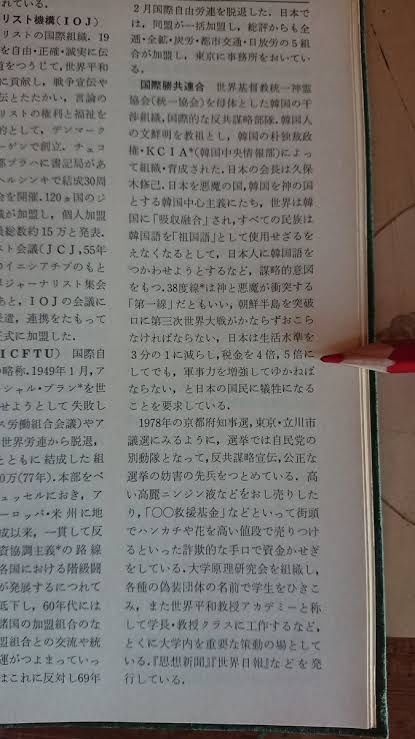 れている.
リスト機構(IOJ)
リストの国際組織. 19
を自由・正確・誠実に伝
道をつうじて,世界平和
に貢献し, 戦争宣伝や
伝とたたかい, 言論の
リストの権利と福祉を
的として, デンマーク
ーゲンで創立. チェコ
都プラハに書記局があ
ヘルシンキで結成30周
会を開催. 120ヵ国のジ
織が加盟し, 個人加盟
員総数約15万と発表.
スト会議(JCJ, 55年
のイニシアチブのもと
ジャーナリスト集会
あと, IOJの会議に
遣, 連携をたもって
正式に加盟した.
ICFTU) 国際自
の略称. 1949年1月, ア
シャル・プラン*を世
せようとして失敗し
ス労働組合会議)やア
世界労連から脱退,
とともに結成した組
0万(77年). 本部をベ
ュッセルにおき, ア
ーロッパ・米州に地
成以来, 一貫して反
資協調主義*の路線
各国における階級闘
が発展するにつれて
低下し, 60年代には
諸国の加盟組合のな
組合との交流や統
運がつよまっていっ
はこれに反対し69年
2月国際自由労連を脱退した. 日本で
は, 同盟が一括加盟し, 総評からも全
逓・全鉱・炭労・都市交通・日放労の5組
合が加盟し, 東京に事務所をおいてい
る.
国際勝共連合 世界基督教統一神霊
協会(統一協会)を母体とした韓国の干
渉組織, 国際的な反共謀略部隊. 韓国人
の文鮮明を教祖とし, 韓国の朴独裁政
権・KCIA*(韓国中央情報部)によっ
て組織・育成された. 日本の会長は久保
木修己. 日本を悪魔の国, 韓国を神の国
とする韓国中心主義にたち, 世界は韓
国に「吸収融合」され, すべての民族は
韓国語を「祖国語」として使用せざるを
えなくなるとして, 日本人に韓国語を
つかわせようとするなど, 謀略的意図
をもつ. 38度線*は神と悪魔が衝突する
「第一線」だともいい, 朝鮮半島を突破
口に第三次世界大戦がかならずおこら
なければならない, 日本は生活水準を
3分の1に減らし, 税金を4倍, 5倍に
してでも, 軍事力を増強してゆかねば
ならない, と日本の国民に犠牲になる
ことを要求している.
1978年の京都府知事選, 東京・立川市
議選にみるように, 選挙では自民党の
別動隊となって, 反共謀略宣伝, 公正な
選挙の妨害の先兵をつとめている. 高
い高麗ニンジン液などをおし売りした
り, 「○○救援基金」などといって街頭
でハンカチや花を高い値段で売りつけ
るといった詐欺的な手口で資金かせぎ
をしている. 大学原理研究会を組織し,
各種の偽装団体の名前で学生をひきこ
み, また世界平和教授アカデミーと称
して学長・教授クラスに工作するなど,
とくに大学内を重要な策動の場として
いる. 『思想新聞』『世界日報』などを発
行している.